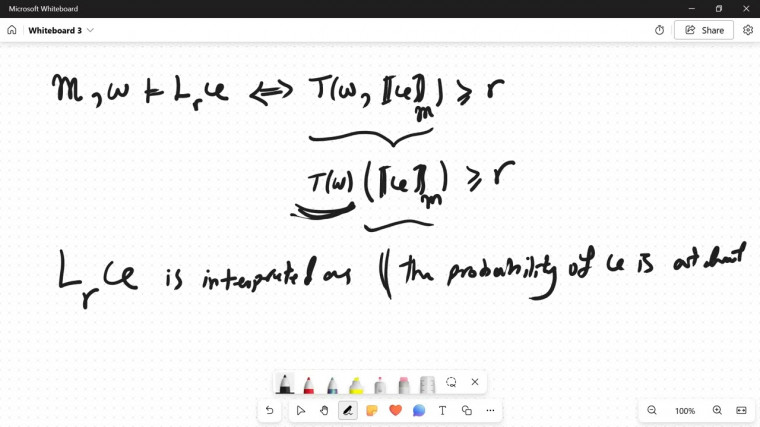 Microsoft Whiteboard
Whiteboard 3
Share
M, w ⊨ L_r φ ⟺ T(w, ⟦φ⟧_M) ≥ r
T(w) (⟦φ⟧_M) ≥ r
L_r φ is interpreted as "the probability of φ is at least
100%